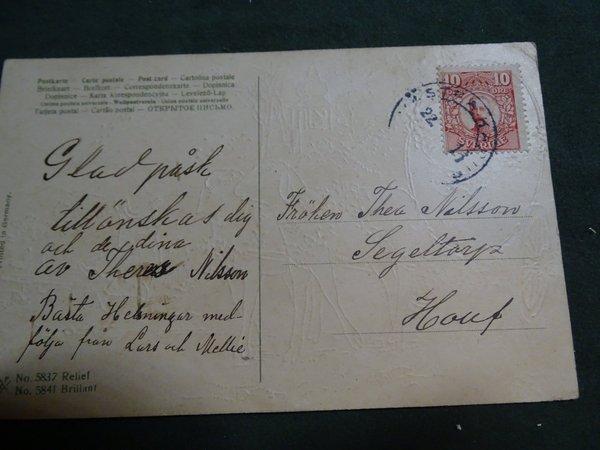 Postkarte – Carte postale – Post card – Cartolina postale
Briefkaart – Brefkort – Correspondenzkarte – Dopisnica
Dopisnice – Karta korespondencyjna – Levelező-Lap
Unione postale universale – Weltpostverein – Union postale universelle
Tarjeta postal – Cartão postal – ОТКРЫТОЕ ПИСЬМО.
10 10
ÖRE
SVERIGE
22
Glad påsk
tillönskas dig
och de dina
av Theres Nilsson
Bästa Helsningar med-
följa från Lars och Mellie
Fröken Thea Nilsson
Segeltorp
Printed in Germany.
No. 5837 Relief
No. 5841 Brillant